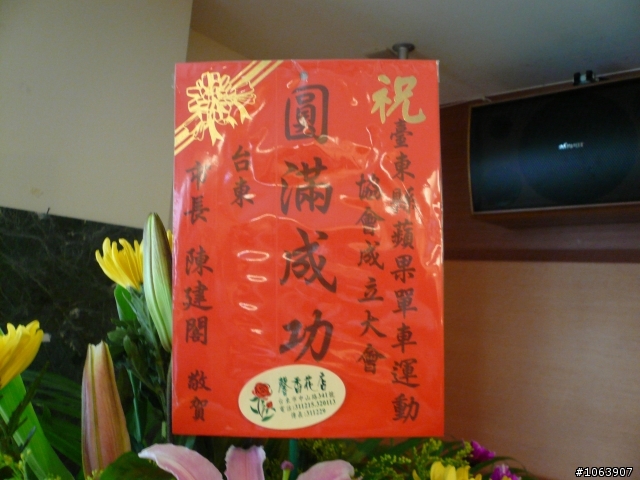 祝
臺東縣蘋果單車運動
協會成立大會
圓滿成功
台東
市長 陳建閣 敬賀
馨香花店
台東市中山路341號
電話:311215.320113
傳真:311229
#1063907